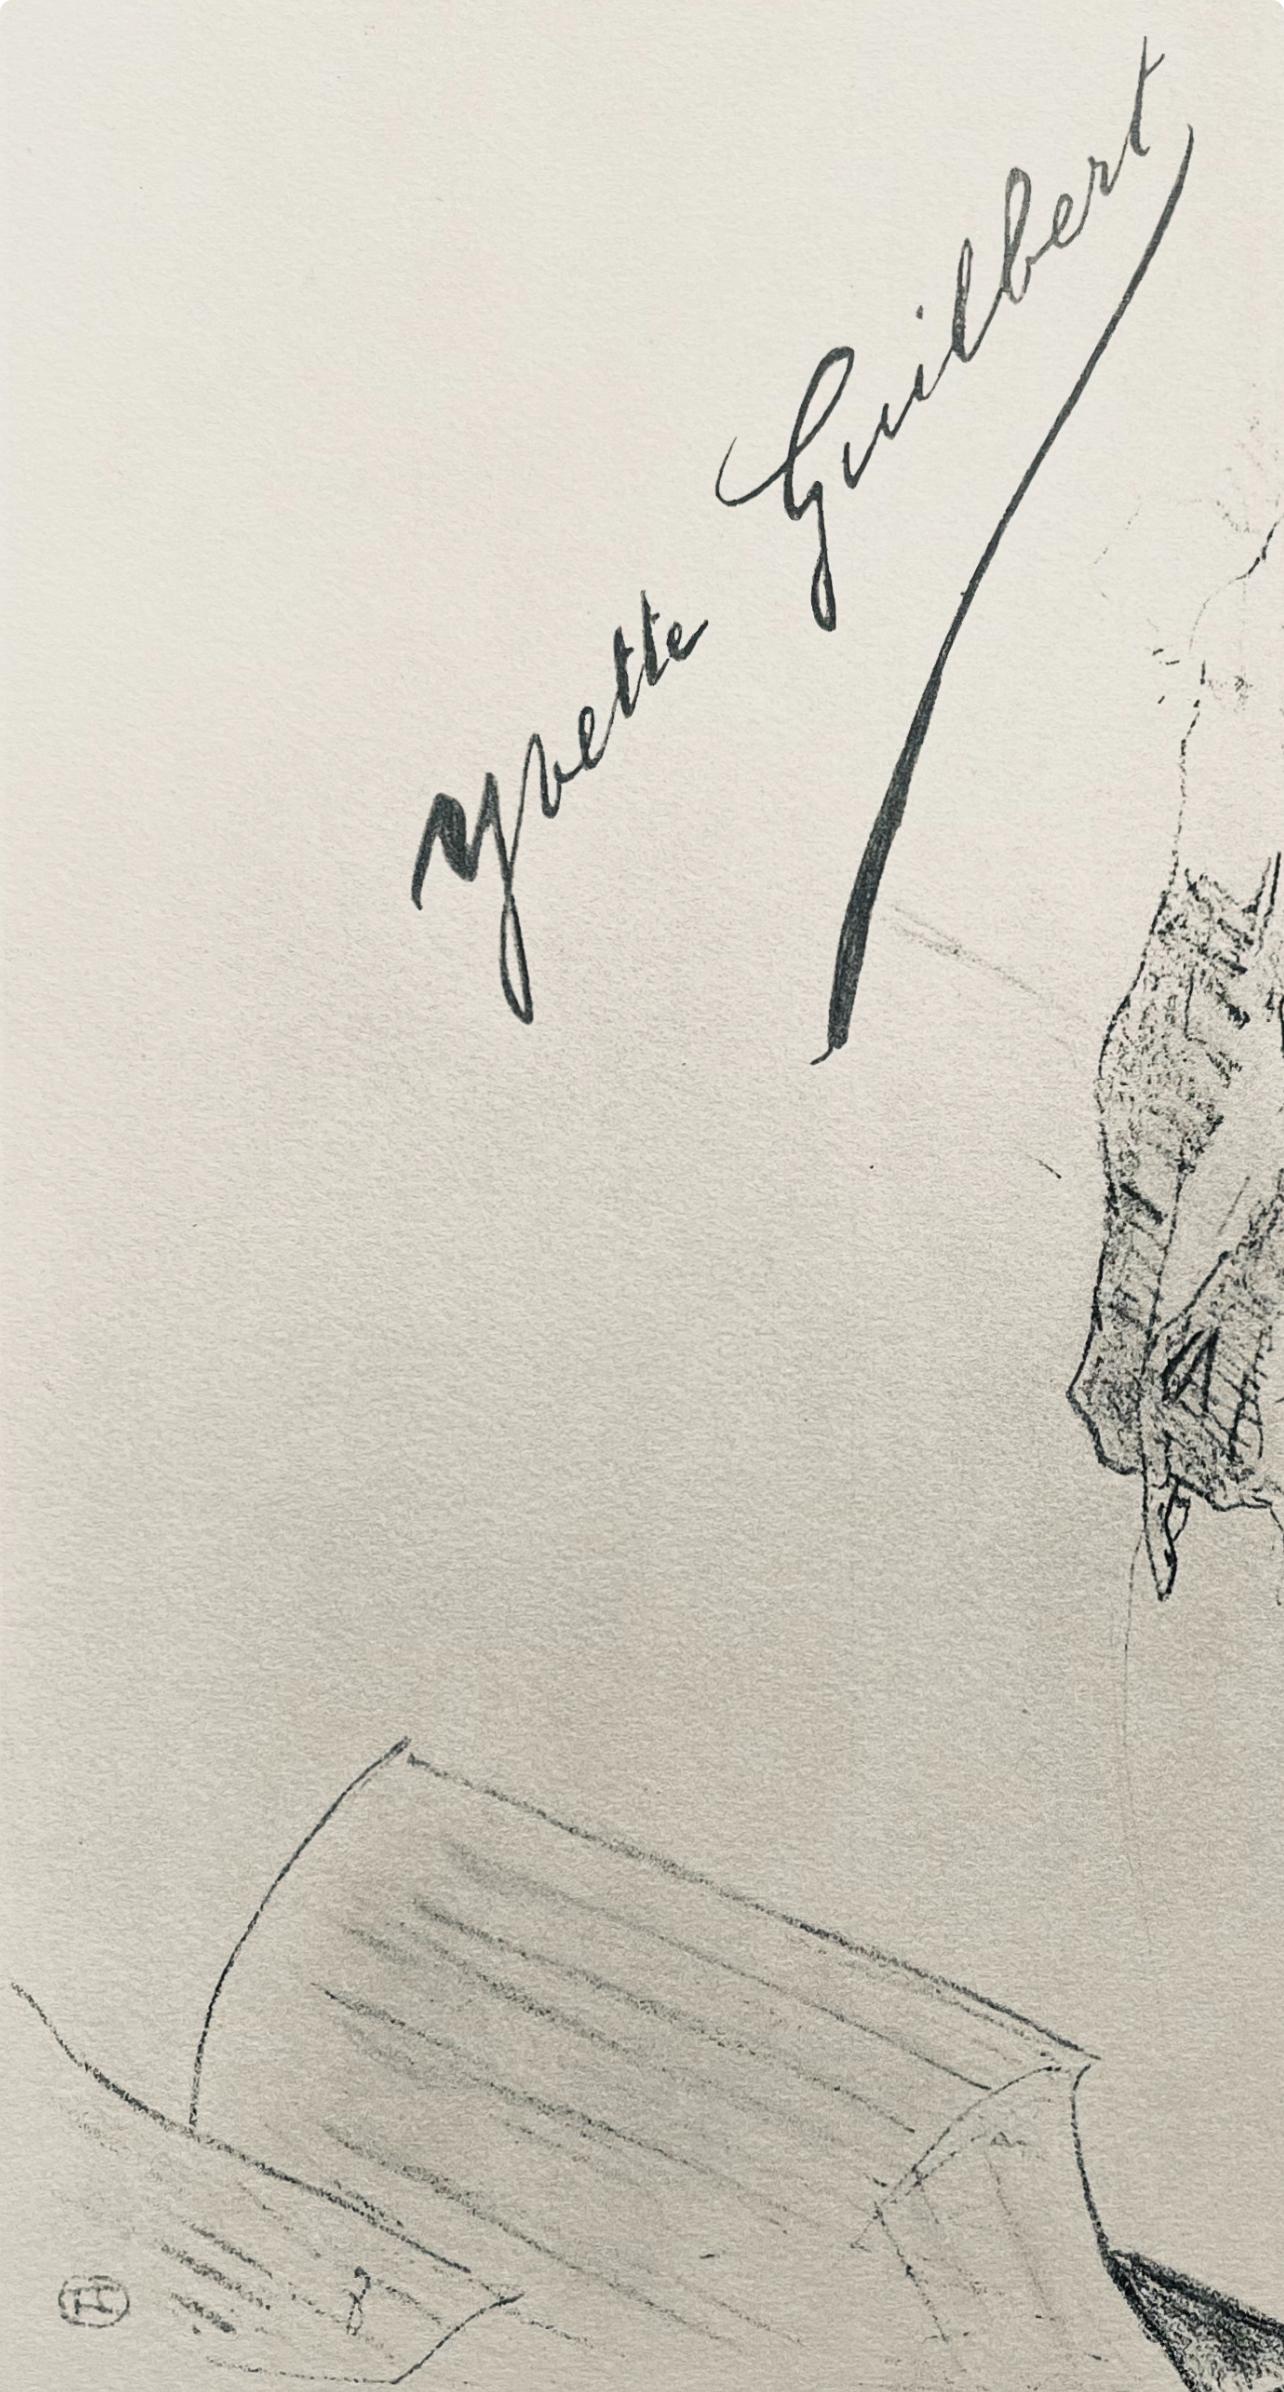 Yvette
Guilbert